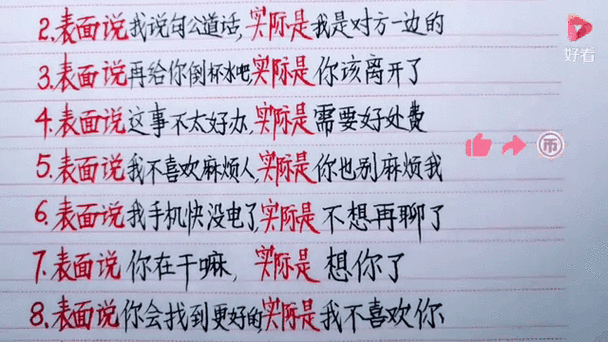 2.表面说我说句公道话,实际是我是对方一边的
好看
3.表面说再给你倒杯水吧,实际是你该离开了
4.表面说这事不太好办,实际是需要好处费
币
5.表面说我不喜欢麻烦人,实际是你也别麻烦我
6.表面说我手机快没电了,实际是不想再聊了
7.表面说你在干嘛,实际是想你了
8.表面说你会找到更好的,实际是我不喜欢你